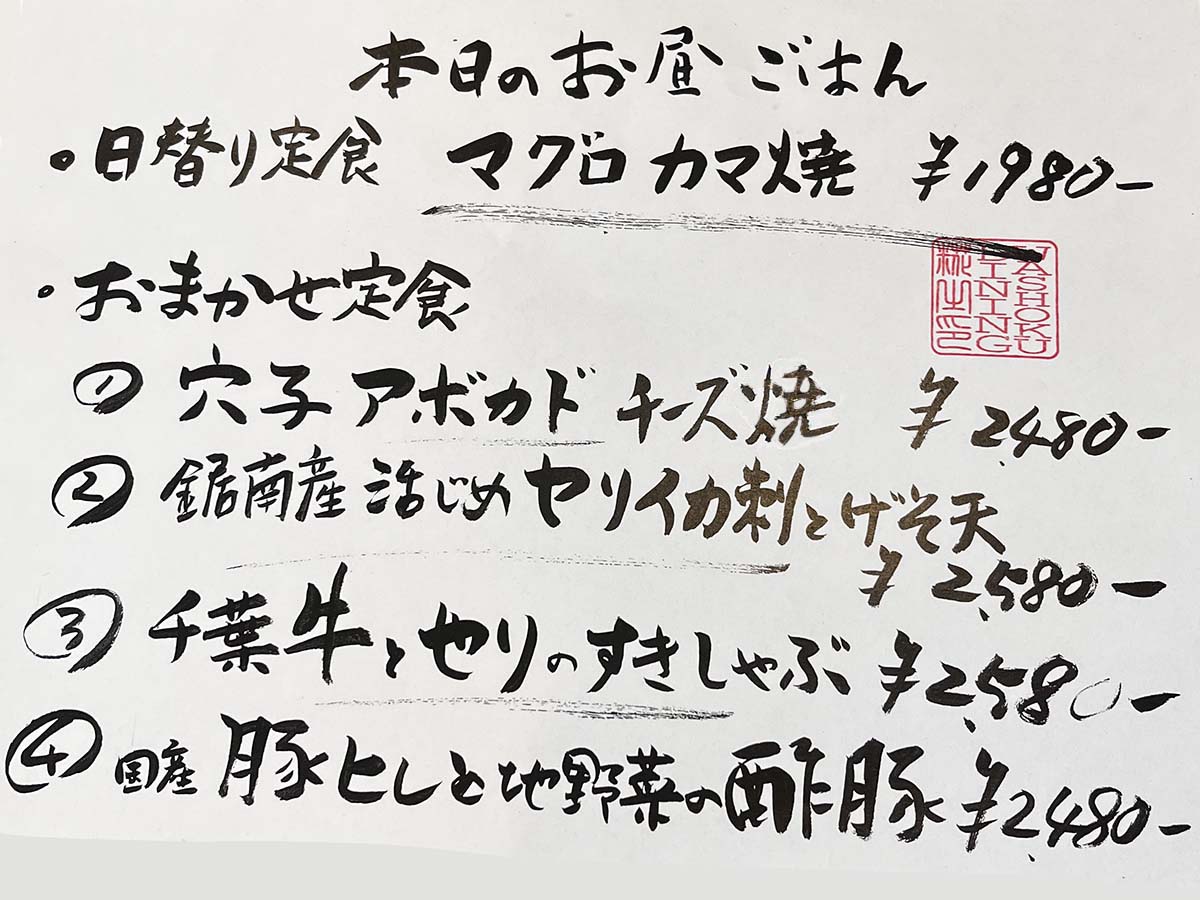 本日のお昼ごはん
・日替り定食 マグロカマ焼 ¥1980-
・おまかせ定食
① 穴子アボカドチーズ焼 ¥2,480-
② 鋸南産活じめヤリイカ刺とげそ天
¥2,580-
③ 千葉牛とせりのすきしゃぶ ¥2,580-
④ 国産豚ヒレと地野菜の酢豚 ¥2,480-
WASHOKU
DINING